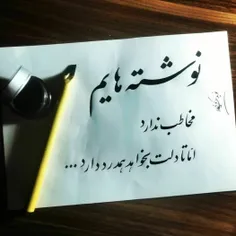 نوشته هایم
مخاطب ندارد
اما تا دلت بخواهد همدرد دارد ...